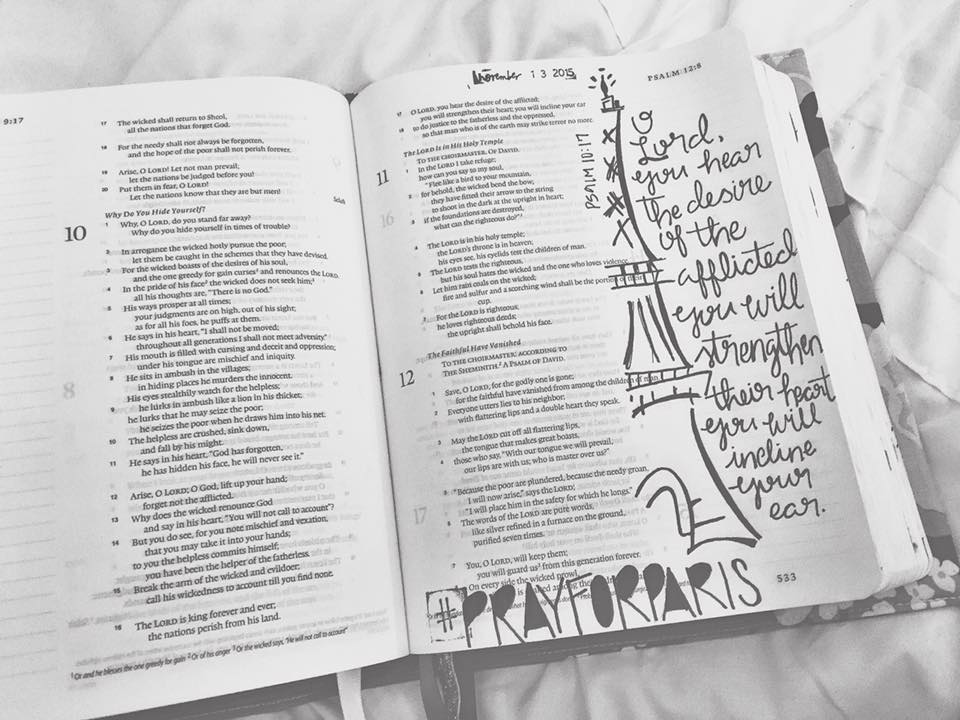 9:17
17 The wicked shall return to Sheol,
all the nations that forget God.
18 For the needy shall not always be forgotten,
and the hope of the poor shall not perish forever.
19 Arise, O LORD! Let not man prevail;
let the nations be judged before you!
20 Put them in fear, O LORD!
Let the nations know that they are but men! Selah
Why Do You Hide Yourself?
10
1 Why, O LORD, do you stand far away?
Why do you hide yourself in times of trouble?
2 In arrogance the wicked hotly pursue the poor;
let them be caught in the schemes that they have devised.
3 For the wicked boasts of the desires of his soul,
and the one greedy for gain curses² and renounces the LORD.
4 In the pride of his face² the wicked does not seek him;³
all his thoughts are, "There is no God."
5 His ways prosper at all times;
your judgments are on high, out of his sight;
as for all his foes, he puffs at them.
6 He says in his heart, "I shall not be moved;
throughout all generations I shall not meet adversity."
7 His mouth is filled with cursing and deceit and oppression;
under his tongue are mischief and iniquity.
8 He sits in ambush in the villages;
in hiding places he murders the innocent.
His eyes stealthily watch for the helpless;
9 he lurks in ambush like a lion in his thicket;
he lurks that he may seize the poor;
he seizes the poor when he draws him into his net.
10 The helpless are crushed, sink down,
and fall by his might.
11 He says in his heart, "God has forgotten,
he has hidden his face, he will never see it."
12 Arise, O LORD; O God, lift up your hand;
forget not the afflicted.
13 Why does the wicked renounce God
and say in his heart, "You will not call to account"?
14 But you do see, for you note mischief and vexation,
that you may take it into your hands;
to you the helpless commits himself;
you have been the helper of the fatherless.
15 Break the arm of the wicked and evildoer;
call his wickedness to account till you find none.
16 The LORD is king forever and ever;
the nations perish from his land.
¹ Or and he blesses the one greedy for gain ² Or of his anger ³ Or the wicked says, "He will not call to account"
November 13 2015
PSALM 12:8
17 O LORD, you hear the desire of the afflicted;
you will strengthen their heart; you will incline your ear
18 to do justice to the fatherless and the oppressed,
so that man who is of the earth may strike terror no more.
The LORD Is in His Holy Temple
TO THE CHOIRMASTER. OF DAVID.
11
1 In the LORD I take refuge;
how can you say to my soul,
"Flee like a bird to your mountain,
2 for behold, the wicked bend the bow;
they have fitted their arrow to the string
to shoot in the dark at the upright in heart;
3 if the foundations are destroyed,
what can the righteous do?"
4 The LORD is in his holy temple;
the LORD's throne is in heaven;
his eyes see, his eyelids test the children of man.
5 The LORD tests the righteous,
but his soul hates the wicked and the one who loves violence.
6 Let him rain coals on the wicked;
fire and sulfur and a scorching wind shall be the portion of their
cup.
7 For the LORD is righteous;
he loves righteous deeds;
the upright shall behold his face.
The Faithful Have Vanished
TO THE CHOIRMASTER: ACCORDING TO
THE SHEMINITH.² A PSALM OF DAVID.
12
1 Save, O LORD, for the godly one is gone;
for the faithful have vanished from among the children of man.
2 Everyone utters lies to his neighbor;
with flattering lips and a double heart they speak.
3 May the LORD cut off all flattering lips,
the tongue that makes great boasts,
4 those who say, "With our tongue we will prevail,
our lips are with us; who is master over us?"
5 "Because the poor are plundered, because the needy groan,
I will now arise," says the LORD;
"I will place him in the safety for which he longs."
6 The words of the LORD are pure words,
like silver refined in a furnace on the ground,
purified seven times.
7 You, O LORD, will keep them;
you will guard us³ from this generation forever.
8 On every side the wicked prowl,
PSALM 10:17
O
Lord,
you hear
the desire
of the
afflicted
you will
strengthen
their heart
you will
incline
your
ear.
#PRAYFORPARIS
533